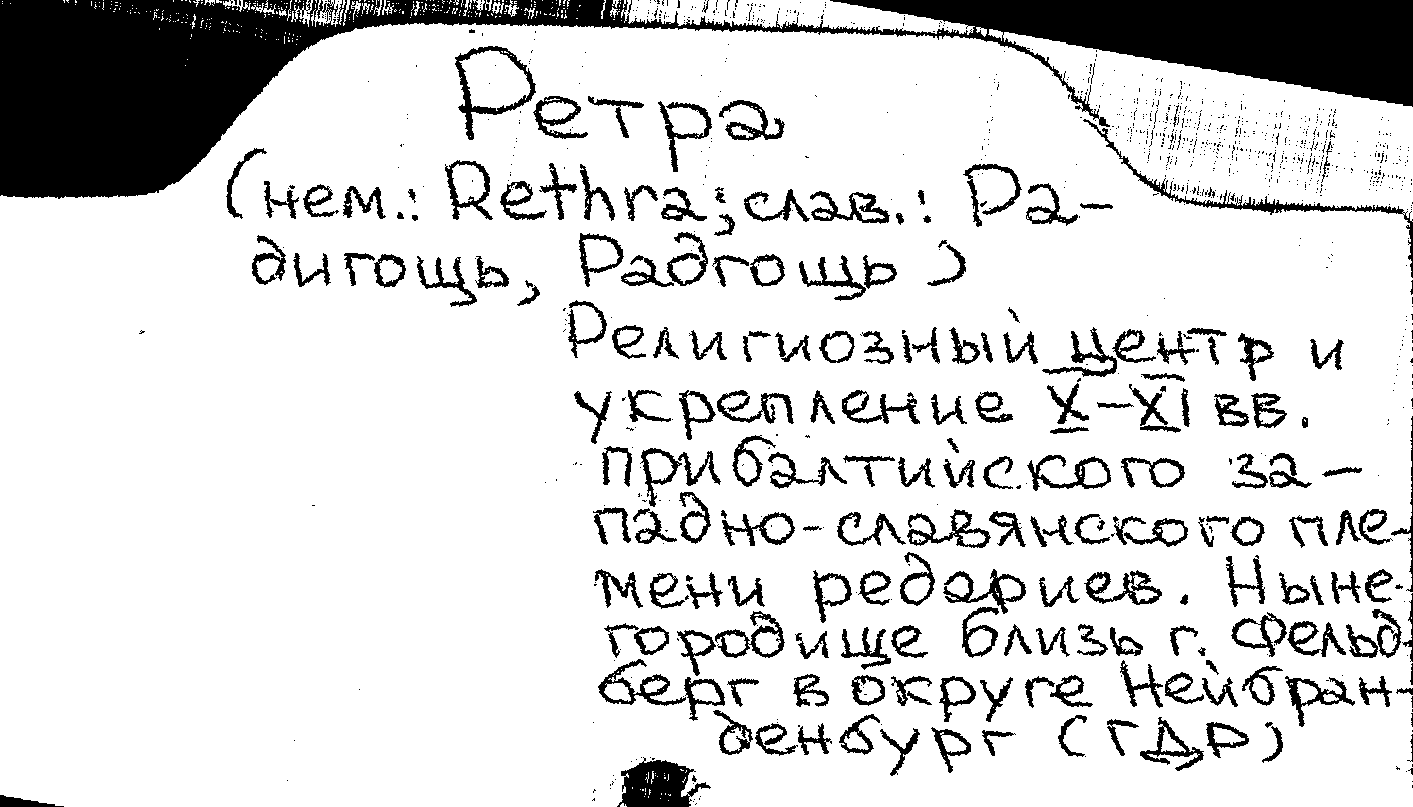 Ретра
(нем.: Rethra; слав.: Ра-
дигощь, Радгощь)
Религиозный центр и
укрепление X-XI вв.
прибалтийского за-
падно-славянского пле-
мени редариев. Ныне-
городище близь г. Фельд-
берг в округе Нейбран-
денбург (ГДР)